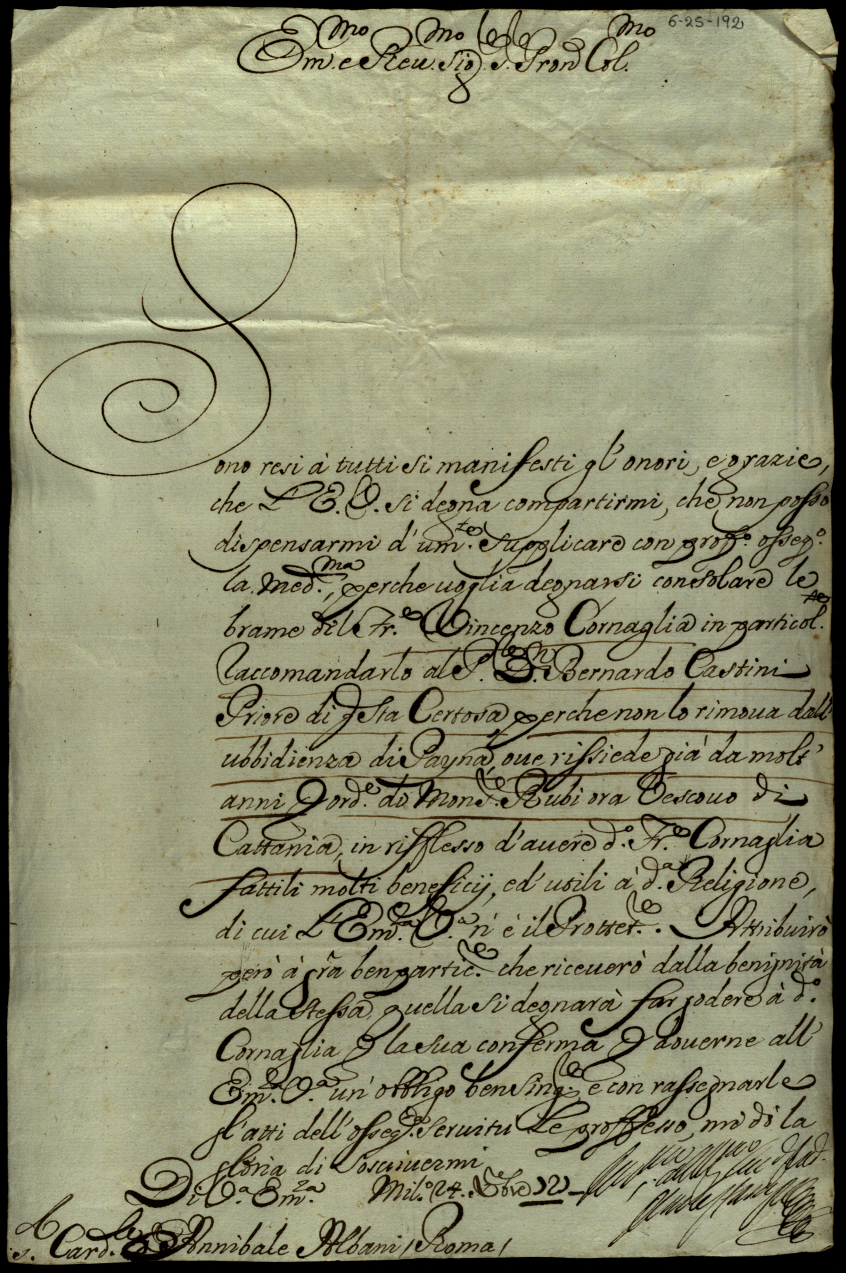 6-25-192
Em.mo e Reu.mo Sig.re S. Pron Col.mo
Sono resi à tutti si manifesti gl' onori, e grazie,
che L' E. V. si degna compartirmi, che non posso
dispensarmi d' um.te supplicare con prof.o osseq.o
la med.ma, perche uoglia degnarsi consolare le
brame dil Fr.e Vincenzo Cornaglia in particol.re
raccomandarlo al P. D. Bernardo Castini
Priore di q.sta Certosa perche non lo rimoua dall'
ubbidienza di Payna, oue rissiede già da molt'
anni p ord.e di Mons.re Rubi ora Vescouo di
Cattania, in rifflesso d' auere d.o Fr.e Cornaglia
fattili molti beneficij, ed' utili à d.a Religione,
di cui L' Em.za V.a n' è il Prottet.re. Attribuirò
però à gr̃a ben partic.re che riceuerò dalla benignità
della stessa, quella si degnarà far godere à d.o
Cornaglia p la sua conferma p douerne all'
Em.za V.a un' obbligo ben sing.re, e con rassegnarle
gl' atti dell' osseq.a seruitu le proffesso, mi dò la
gloria di soscriuermi
Di V.a Em.za Mil.o 24. 
S. Card.le Annibale Albani / Roma /